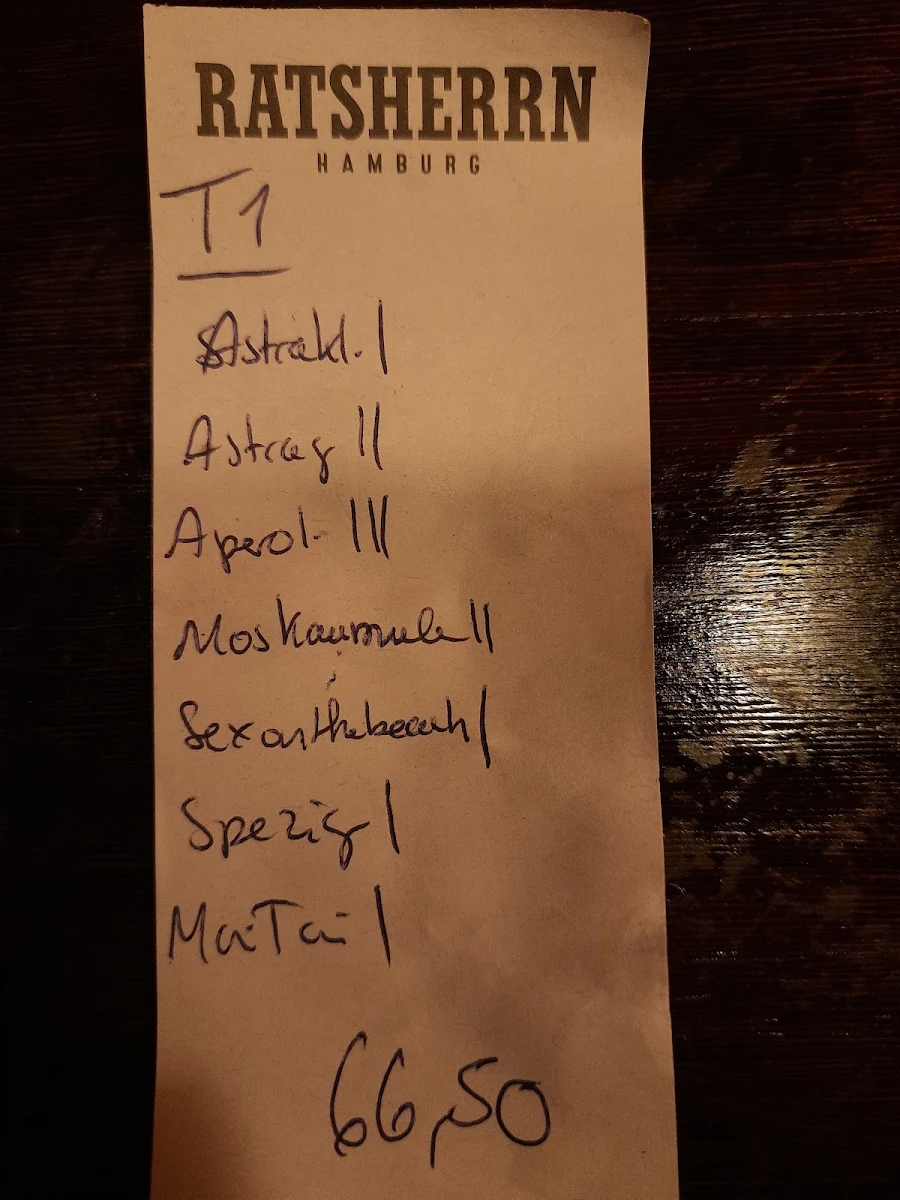 RATSHERRN
HAMBURG
T1
Astrakl. |
Astrag ||
Aperol. |||
Moskaumule ||
Sexonthebeach |
Spezig |
MaiTai |
66,50